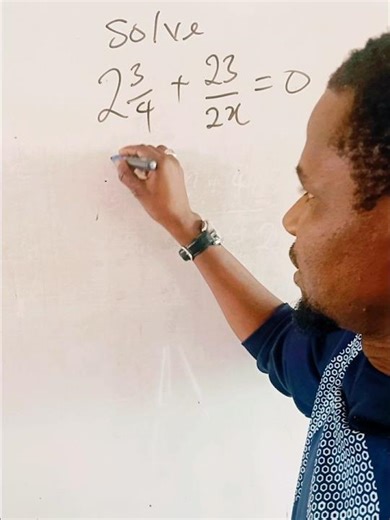 Solve
2 3/4 + 23/2x = 0